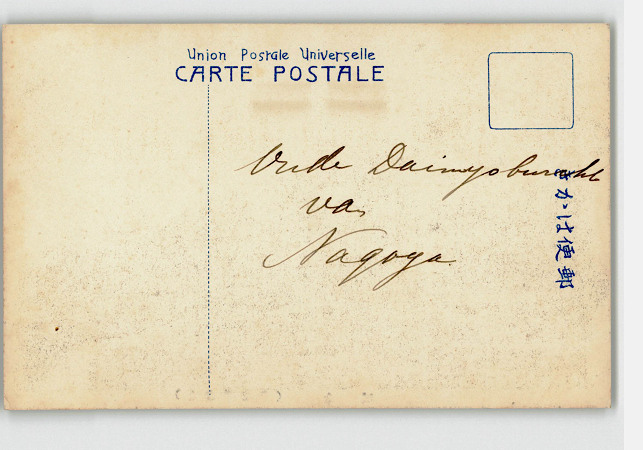 Union Postale Universelle
CARTE POSTALE
Oude Daimyoburcht
van
Nagoya
郵便はかき